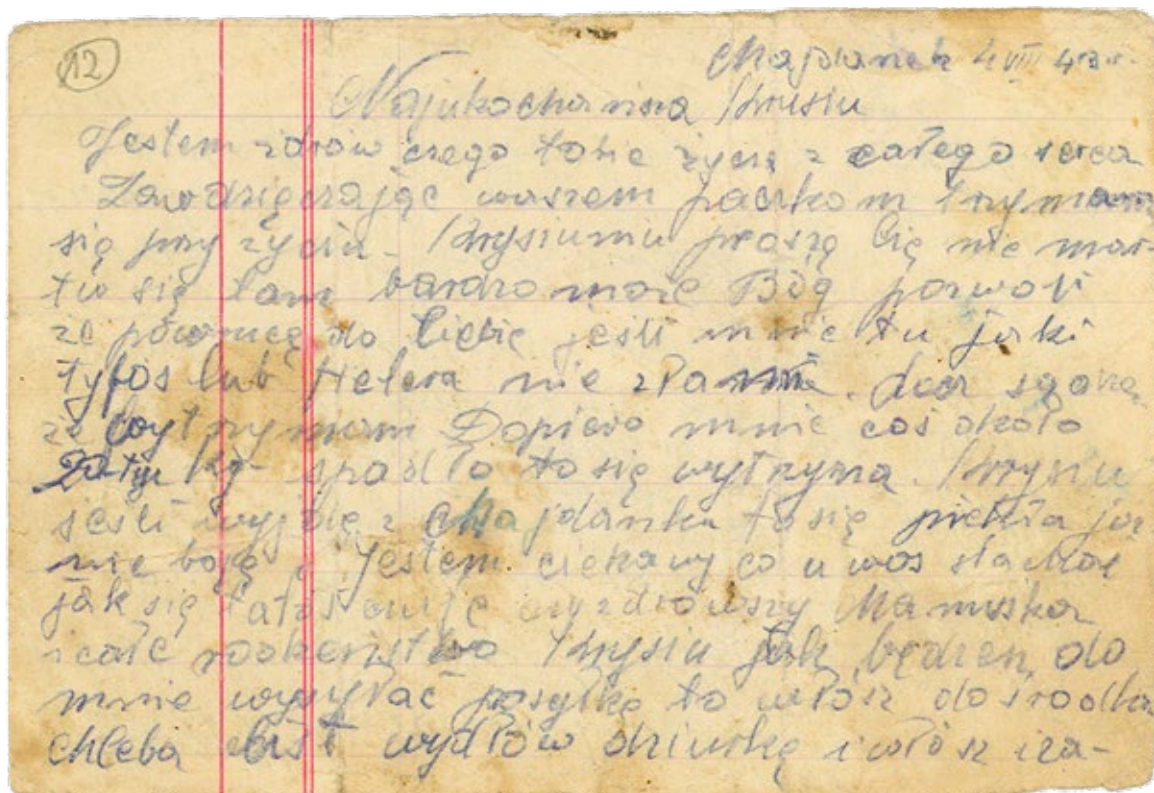 12
Majdanek 4 VIII 43 r.
Najukochansza Krysiu
Jestem zdrów czego tobie życzę z całego serca
Zawdzięczając waszem paczkom trzymam
się przy życiu. Krysiumu proszę Cię nie mar-
tw się tam bardzo może Bóg pozwoli
że powrócę do Ciebie jeśli mnie tu jaki
tyfos lub nie złamie.
że wytrzymam Dopiero mnie coś około
kg spadło to się wytrzyma. Krysiu
jesli wyjdę z Majdanku to się piekła już
nie boję. Jestem ciekawy co u was słachać
jak się tatuś czuję czy zdrowszy Mamuska
i całe Krysiu jak będziesz do
mnie wysyłać posyłkę to włósz do środka
chleba list wydłów dziurkę i włósz i za-